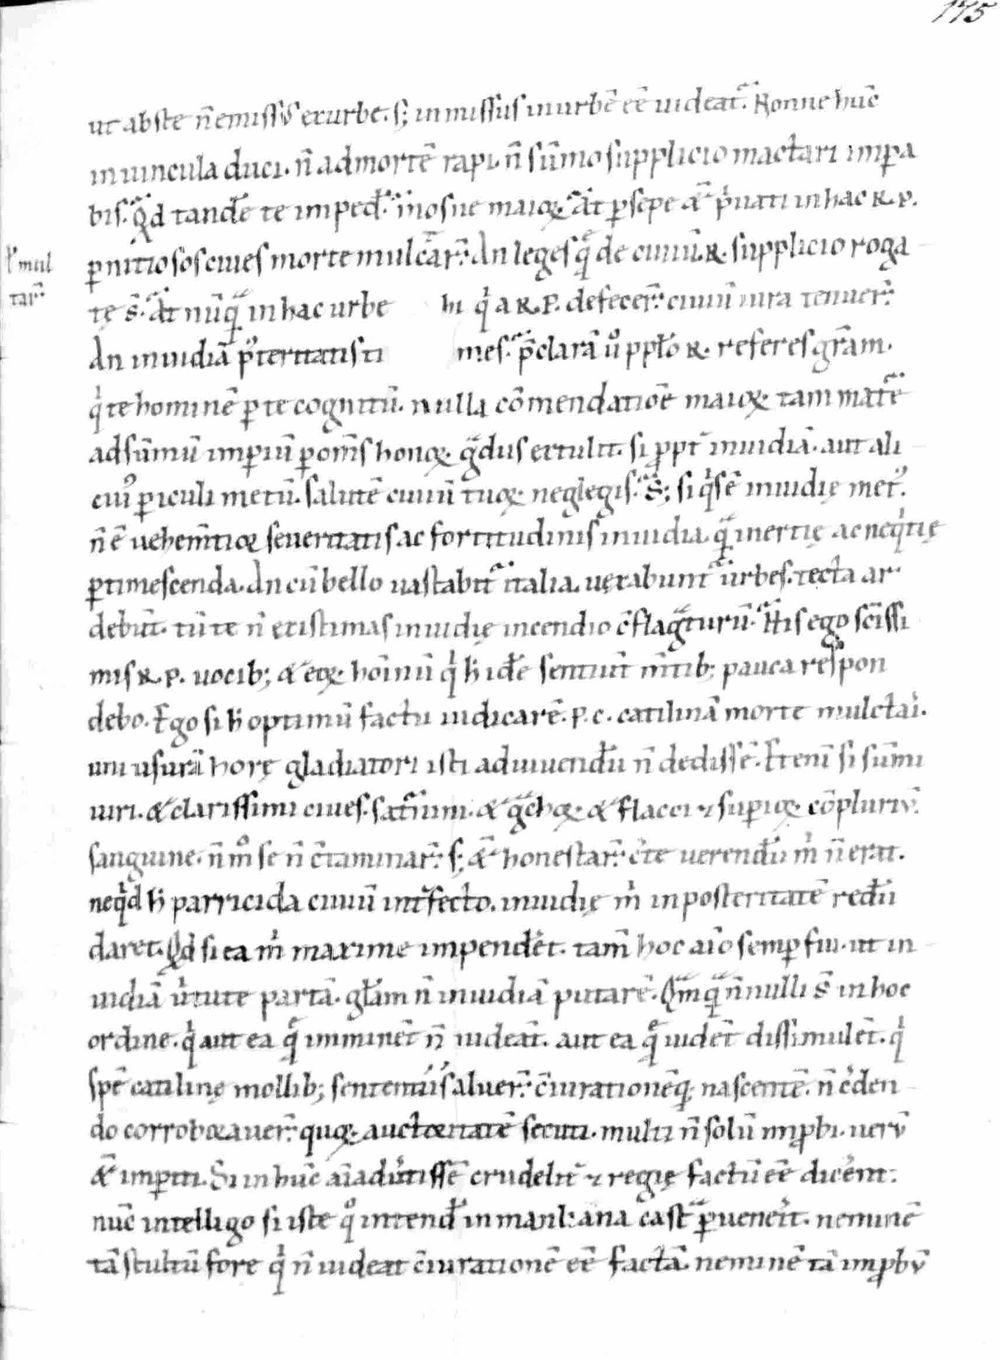 175
ut abste n̄ emissus exurbe. s; inmissus inurbē eē uideat̄. Nonne hūc
inuincula duci. n̄ admortē rapi. n̄ sūmo supplicio mactari impa
bis. Qd tandē te imped̄. mosne maioꝝ. At psepe &̄ pͥuati inhac R.P.
pnitiosos ciues morte mulcar̄. An leges q̄ de ciuiū .R. supplicio roga
ł mul
tar̄
tę s̄. At nūqͣ inhac urbe hi qͥ a R.P. defecer̄. ciuiū iura tenuer̄.
An inuidiā p̄teritatisti mes. p̄clarā u̾ pplo R. referes gr̄am.
qͥ te hominē pte cognitū. nulla cōmendatiōe maioꝝ tam mat̄e
adsūmū imperiū p om̄s honoꝝ gͣdus extulit. si ppt̄ inuidiā. aut ali
cui᾽ piculi metū. salutē ciuiū tuoꝝ neglegis. S; siqͥs ē inuidię met᾽.
n̄ ē uehem̄tioꝝ seueritatis ac fortitudinis inuidia. qͣ inertię ac neqͥtię
ptimescenda. An cū bello uastabit̄ italia. uexabunt̄ urbes. tecta ar
debūt. tū te n̄ existimas inuidię incendio c̄flagͣturū. His ego sc̄issi
mis R.P. uocib; & eoꝝ hoīnū qͥ h̄ idē sentiunt m̄tib; pauca respon
debo. Ego si h̄ optimū factu iudicarē. P.C. catilinā morte mulctari.
uni usurā horę gladiatori isti aduiuendū n̄ dedissē. Etenī si sūmi
uiri. & clarissimi ciues. saturnini. & gͣchoꝝ & flacci & supioꝝ cōpluriū.
sanguine. n̄ mͦ se n̄ c̄taminar̄. s; &̄ honestar̄. c̄te uerendū mͥ n̄ erat.
neqͥd h̄ parricida ciuiū int̄fecto. inuidię mͥ inposteritatē redū
daret. Qd si ea mͥ maxime impenderet. tam̄ hoc aīo semp fui. ut in
uidiā uͥtute partā. gl̄am n̄ inuidiā putarē. Qm̄qͣ n̄nulli s̄ inhoc
ordine. qͥ aut ea q̄ imminet̄ n̄ uideāt. aut ea q̄ uidet̄ dissimulet̄. qͥ
spē catilinę mollib; sententiis aluer̄. c̄iurationēq; nascentē. n̄ c̄den
do corroborauer̄. quoꝝ auctoritatē secuti. multi n̄ solū impbi. uerū
&̄ impiti. Si in hūc aīaduertissē crudelit̄ & regię factū eē dicerent.
nūc intelligo si iste qͦ intendit inmanliana cast̄ puenerit. neminē
tā stultū fore qͥ n̄ uideat c̄iurationē eē factā. neminē tā impbū